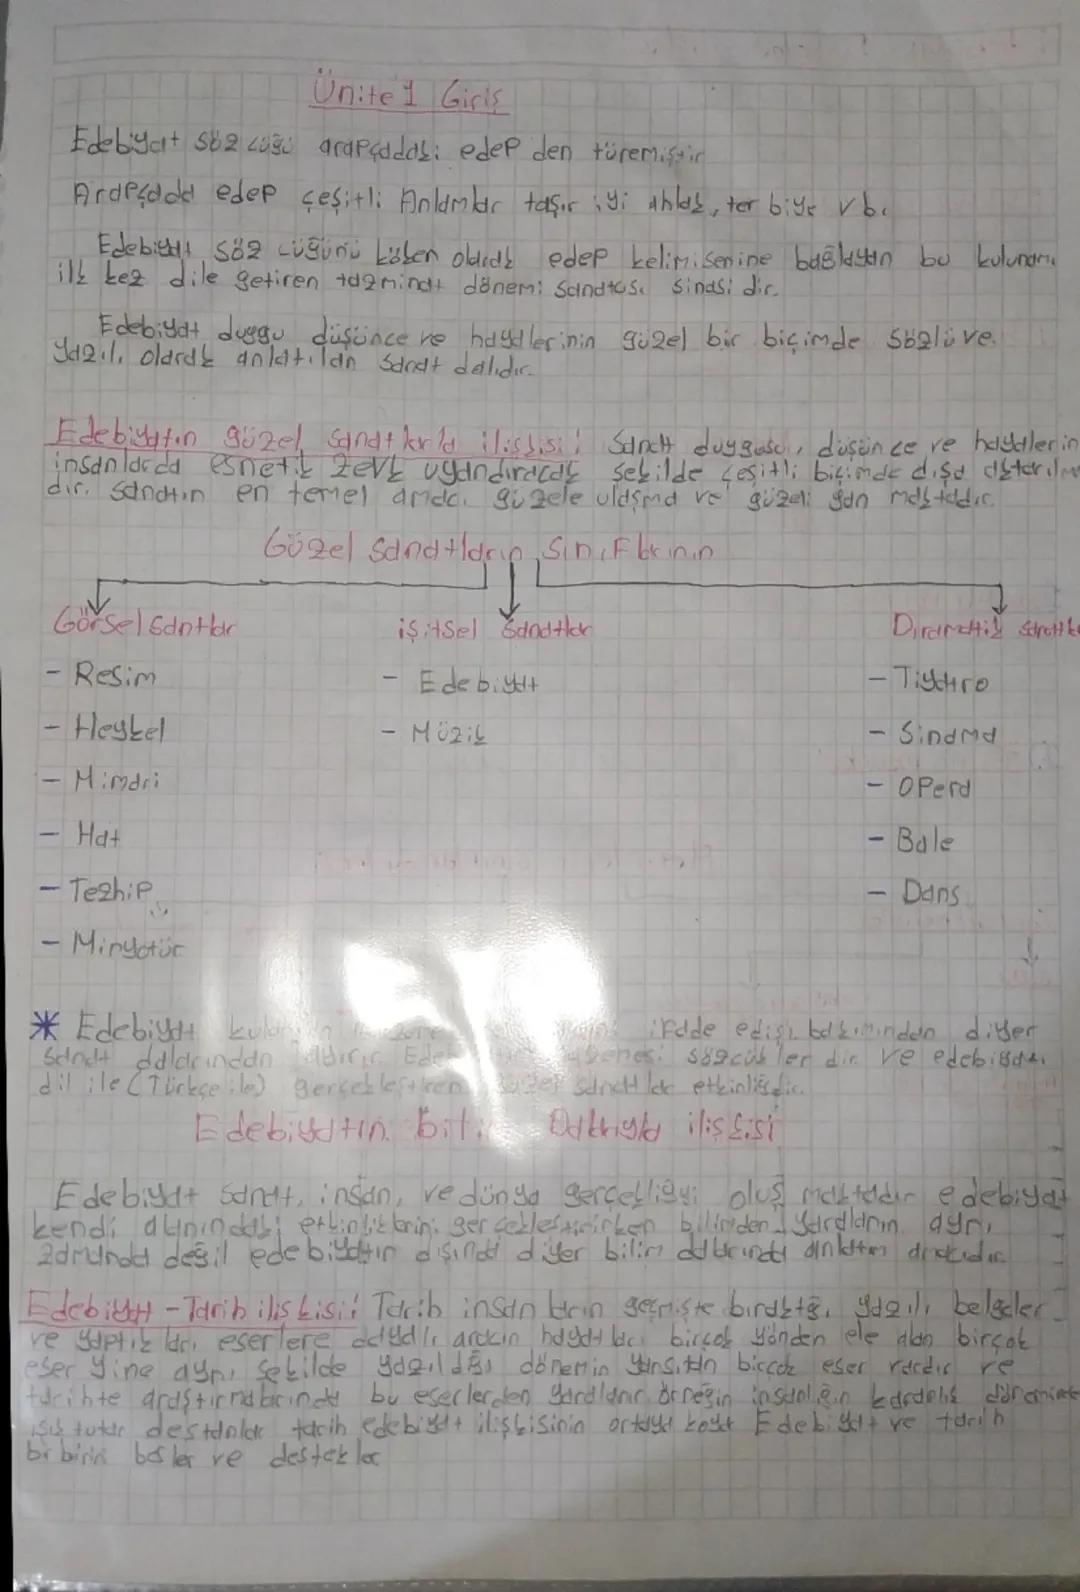 Ünite 1 Giriş
Edebiyat sözcüğü arapçadaki edep den türemiştir
Arapçada edep çeşitli Anlamlar taşır iyi ahlak, ter biye vb.
Edebiyat söz cüğünü köken olarak edep kelimisenine bağlayan bu kulunanı
ilk kez dile getiren tazminat dönemi sanatcısı sinasi dir.
Edebiyat duygu düşünce ve hayallerinin güzel bir biçimde sözlü ve
yazılı olarak anlatılan sanat dalıdır.
Edebiyatın güzel sanatlarla ilişkisi: Sanat duygusu, düşünce ve hayallerin
insanlarda esnetik zevk uyandıracak şekilde çeşitli biçimde dışa aktarılma
dır. sanatın en temel amacı güzele ulaşma ve güzeli maktadır.
Güzel Sanatların Sınıflarının
Görsel Santlar işitsel Sanatlar Diramatik
- Resim - Edebiyat - Tiyatro
- Heykel - Müzik - Sinama
- Mimari - Opera
- Hat - Bale
- Tezhip - Dans
- Minyatür
* Edebiyat ifade edişi bakımından diğer
sanat dallarından sözcük ler dir. ve edebiyat
dil ile (Türkçe ile) gerçekleştiren güzel sanatlar etkinliğidir.
Edebiyatın ilişkisi
Edebiyat sanat, insan, ve dünya gerçekliğyi oluş maktadır edebiyat
kendi alanındaki etkinliklerini gerçekleştirirken bilimden yardlanın aynı
zamanda değil edebiyatın dışında diğer bilim dallarında anlatım aracıdır.
Edebiyat - Tarih ilişkisi: Tarih insanların geçmişte bıraktığı yazılı belgeler
ve yaptıkları eserlere dayalı hayatları birçok yönden ele alan birçok
eser yine aynı şekilde yazıldığı dönemin yansıtan bircok eser vardır ve
tarihte araştırmalarında bu eserlerden yardlanır örneğin insanlığın
ışık tutar destanlar tarih edebiyat ilişkisinin ortaya koyar Edebiyat ve tarih
bir birini besler ve destekler